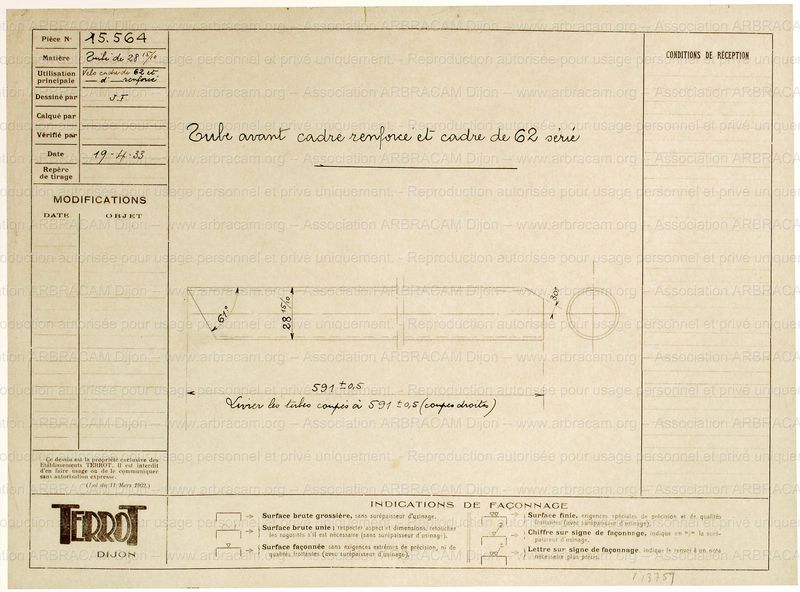 Pièce N° 15.564
Matière Tube de 28 15/10
Utilisation principale Vélo cadre de 62 et
d° renforcé
Dessiné par J.F
Calqué par
Vérifié par
Date 19-4-33
Repère
de tirage
MODIFICATIONS
DATE OBJET
CONDITIONS DE RÉCEPTION
Tube avant cadre renforcé et cadre de 62 série
61°
28 15/10
30°
591 ± 0,5
Livrer les tubes coupés à 591 ± 0,5 (coupes droites)
Ce dessin est la propriété exclusive des
Etablissements TERROT. Il est interdit
d'en faire usage ou de le communiquer
sans autorisation expresse.
(Loi du 11 Mars 1902.)
TERROT
DIJON
INDICATIONS DE FAÇONNAGE
Surface brute grossière, sans surépaisseur d'usinage.
Surface brute unie ; respecter aspect et dimensions, retoucher
les rugosités s'il est nécessaire (sans surépaisseur d'usinage).
Surface façonnée sans exigences extrêmes de précision, ni de
qualités frottantes (avec surépaisseur d'usinage).
Surface finie, exigences spéciales de précision et de qualités
frottantes (avec surépaisseur d'usinage).
Chiffre sur signe de façonnage, indique en m/m la suré-
paisseur d'usinage.
Lettre sur signe de façonnage, indique le renvoi à une note
nécessaire plus précise.
www.arbracam.org – Association ARBRACAM Dijon – Reproduction autorisée pour usage personnel et privé uniquement.